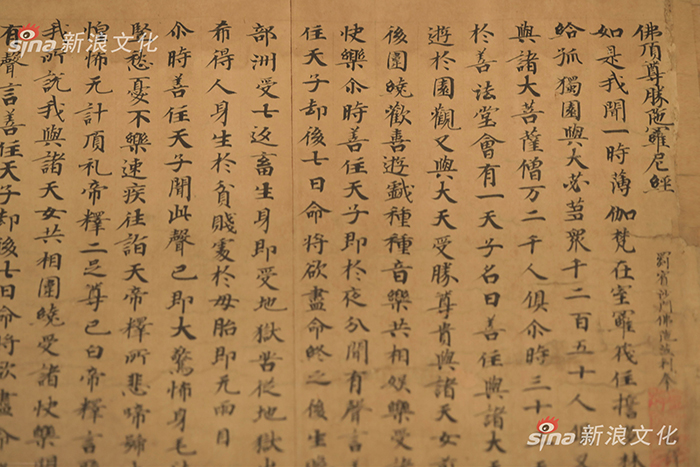 佛頂尊勝陁羅尼經
罽賓沙門佛陁波利奉
如是我聞一時薄伽梵在室羅筏住誓林
給孤獨園與大苾蒭衆千二百五十人又
與諸大菩薩僧万二千人俱尒時三十
於善法堂會有一天子名曰善住與諸大天
遊於園觀又與大天受勝尊貴與諸天女前
後圍繞歡喜遊戲種種音樂共相娛樂受諸
快樂尒時善住天子即於夜分聞有聲言善
住天子却後七日命將欲盡命終之後生贍
部洲受七返畜生身即受地獄苦從地獄出
希得人身生於貧賤處於母胎即无兩目
尒時善住天子聞此聲已即大驚怖身毛
竪愁憂不樂速疾往詣天帝釋所悲啼號
惶怖无計頂礼帝釋二足尊已白帝釋言
我所說我與諸天女共相圍繞受諸快樂聞
有聲言善住天子却後七日命將欲盡命
sina 新浪文化
sina 新浪文化